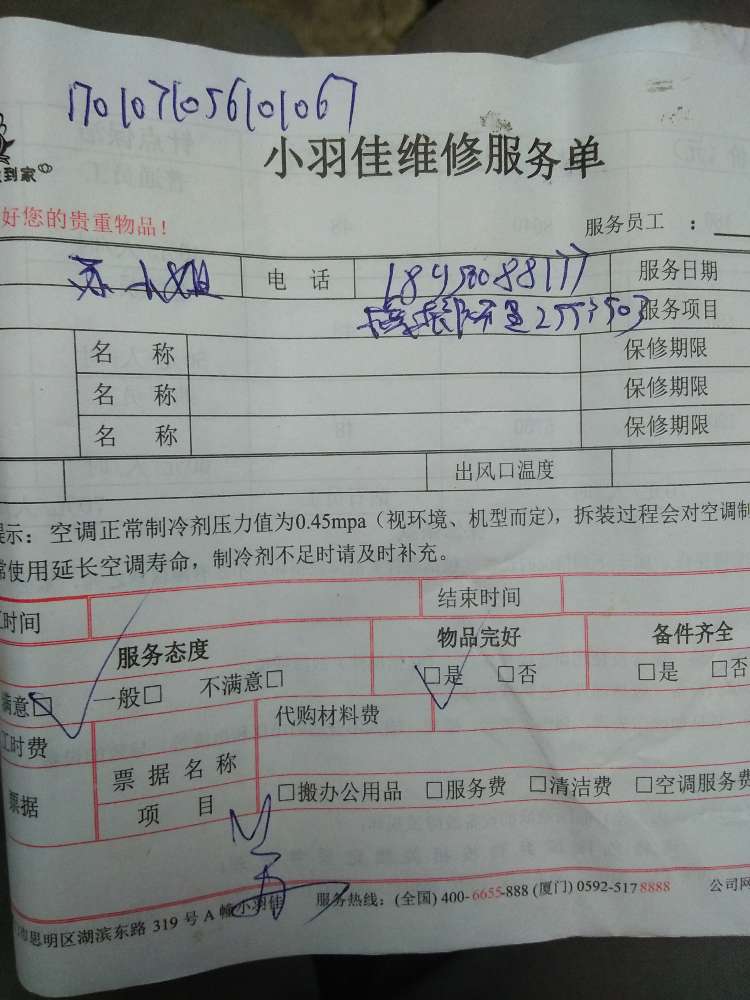 1701071056101067
小羽佳维修服务单
到家
好您的贵重物品！
服务员工 ：
苏小姐 电 话 服务日期
服务项目
名 称 保修期限
名 称 保修期限
名 称 保修期限
出风口温度
示：空调正常制冷剂压力值为0.45mpa（视环境、机型而定），拆装过程会对空调制
使用延长空调寿命，制冷剂不足时请及时补充。
时间 结束时间
服务态度 物品完好 备件齐全
满意□ 一般□ 不满意□ □是 □否 □是 □否
工时费 代购材料费
票据 票据名称
项 目 □搬办公用品 □服务费 □清洁费 □空调服务费
思明区湖滨东路 319 号 A 幢小羽佳 服务热线：(全国) 400-6655-888 (厦门) 0592-517 8888 公司网